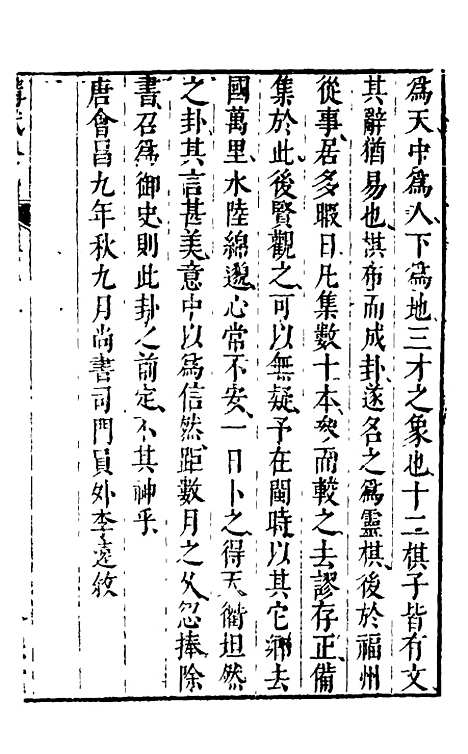 為天中為人下為地三才之象也十二棋子皆有文
其辭猶易也棋布而成卦遂名之為靈棋後於福州
從事居多暇日凡集數十本參而較之去謬存正備
集於此後賢觀之可以無疑予在閩時以其它鄉去
國萬里水陸綿邈心常不安一日卜之得天衢坦然
之卦其言甚美意中以為信然距數月之久忽捧除
書召為御史則此卦之前定不其神乎
唐會昌九年秋九月尚書司門員外李遠敘